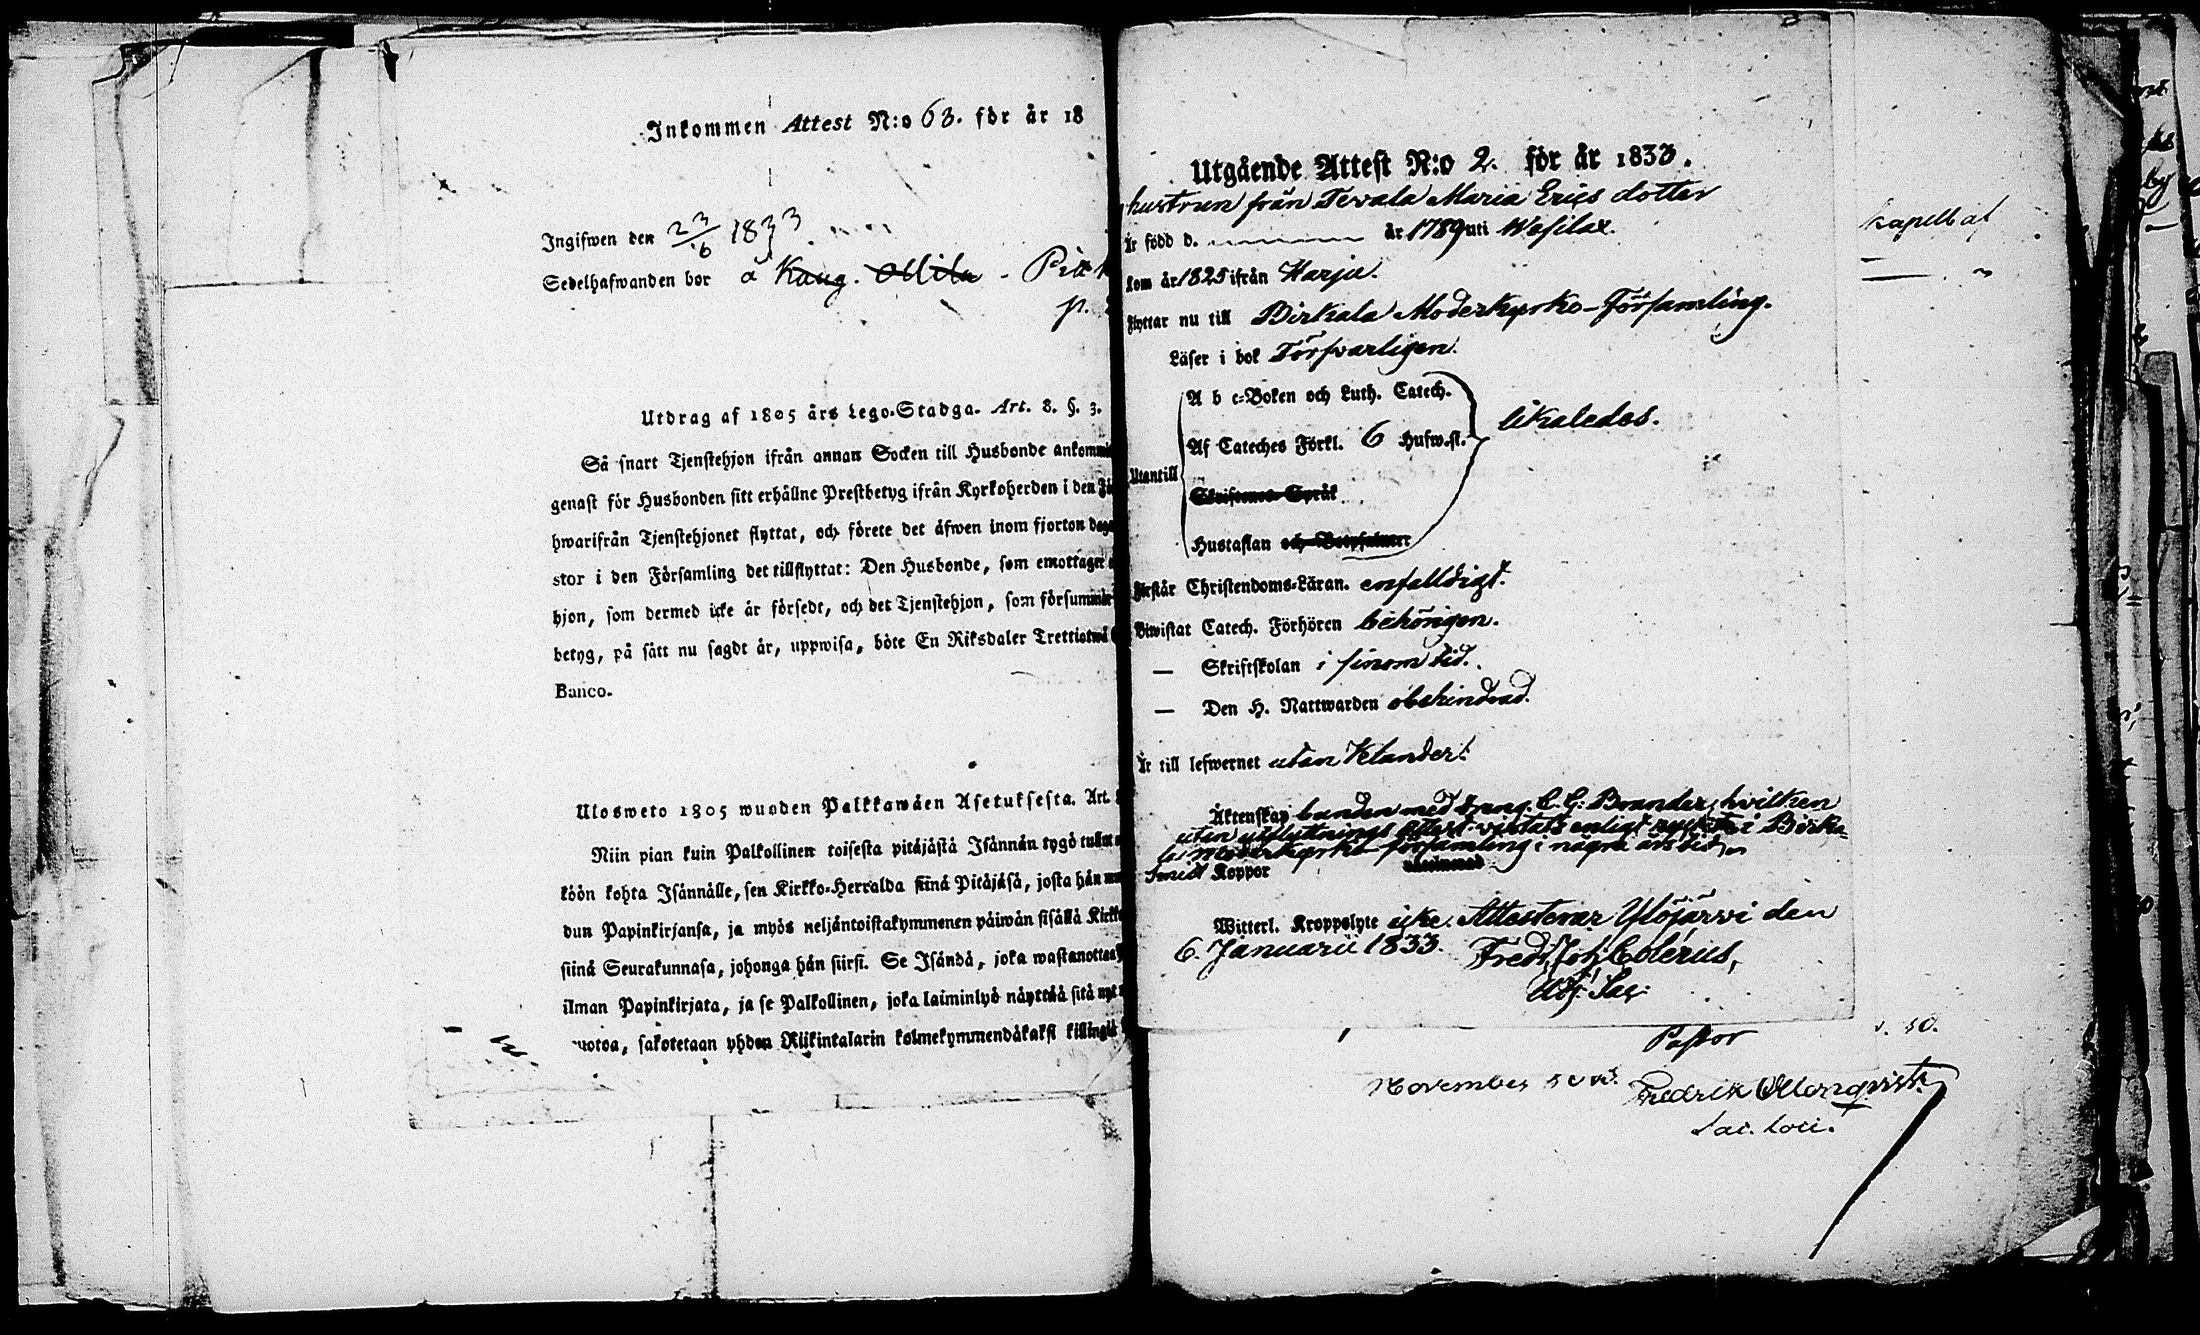 Inkommen Attest N:o 63. för år 18
Ingifwen den 23/6 1833
Sedelhafwanden bor å Kaug. Ollila - Pitk
p.
Utdrag af 1805 års Lego-Stadga. Art. 8. §. 3.
Så snart Tjenstehjon ifrån annan Socken till Husbonde ankommi
genast för Husbonden sitt erhållne Prestbetyg ifrån Kyrkoherden i den
hwarifrån Tjenstehjonet flyttat, och förete det äfwen inom fjorton daga
stor i den Församling det tillflyttat: Den Husbonde, som emottager
hjon, som dermed icke är försedt, och det Tjenstehjon, som försummar
betyg, på sätt nu sagdt är, uppwisa, böte En Riksdaler Trettiotwå
Banco.
Ulosweto 1805 wuoden Palkkawäen Asetuksesta. Art.
Niin pian kuin Palkollinen toisesta pitäjästä Isännän tygö tullut
köön kohta Isännälle, sen Kirkko-Herralda siinä Pitäjäsä, josta hän
dun Papinkirjansa, ja myös neljäntoistakymmenen päiwän sisällä
siinä Seurakunnasa, johonga hän siirsi. Se Isändä, joka wastanottaa
ilman Papinkirjata, ja se Palkollinen, joka laiminlyö näyttää sitä nyt
uotoa, sakotetaan yhden Riikintalarin kolmekymmendäkaksi killingiä
Utgående Attest N:o 2. för år 1833.
hustrun från Tevala Maria Erics dotter
Är född d. år 1789 uti Wesilax.
kom år 1825 ifrån Harju.
flyttar nu till Birkala Moderkyrko-Församling.
Läser i bok Försvarligen.
A b c-Boken och Luth. Catech.
Af Cateches Förkl. 6 Hufw.st. likaledes.
Utantill
Skriftenes Språk
Hustaflan och Botpsalmer
Förstår Christendoms-Läran. enfalldigt.
Biwistat Catech. Förhören behörigen.
— Skriftskolan i sinom tid.
— Den H. Nattwarden obehindrad.
Är till lefwernet utan Klander.
Äktenskap bunden med dräng. C. G. Brander, hvilken
utan utflyttnings attest vistats enligt i Birka-
la moderkyrko församling i några års tid
Smitt Koppor
Witterl. Kroppslyte icke. Attesterar Ylöjärvi den
6. Januarii 1833. Fredr. Joh. Colerus,
Adj. Sac.
kapell af
Pastor
November
Fredrik
Sac. Loci.